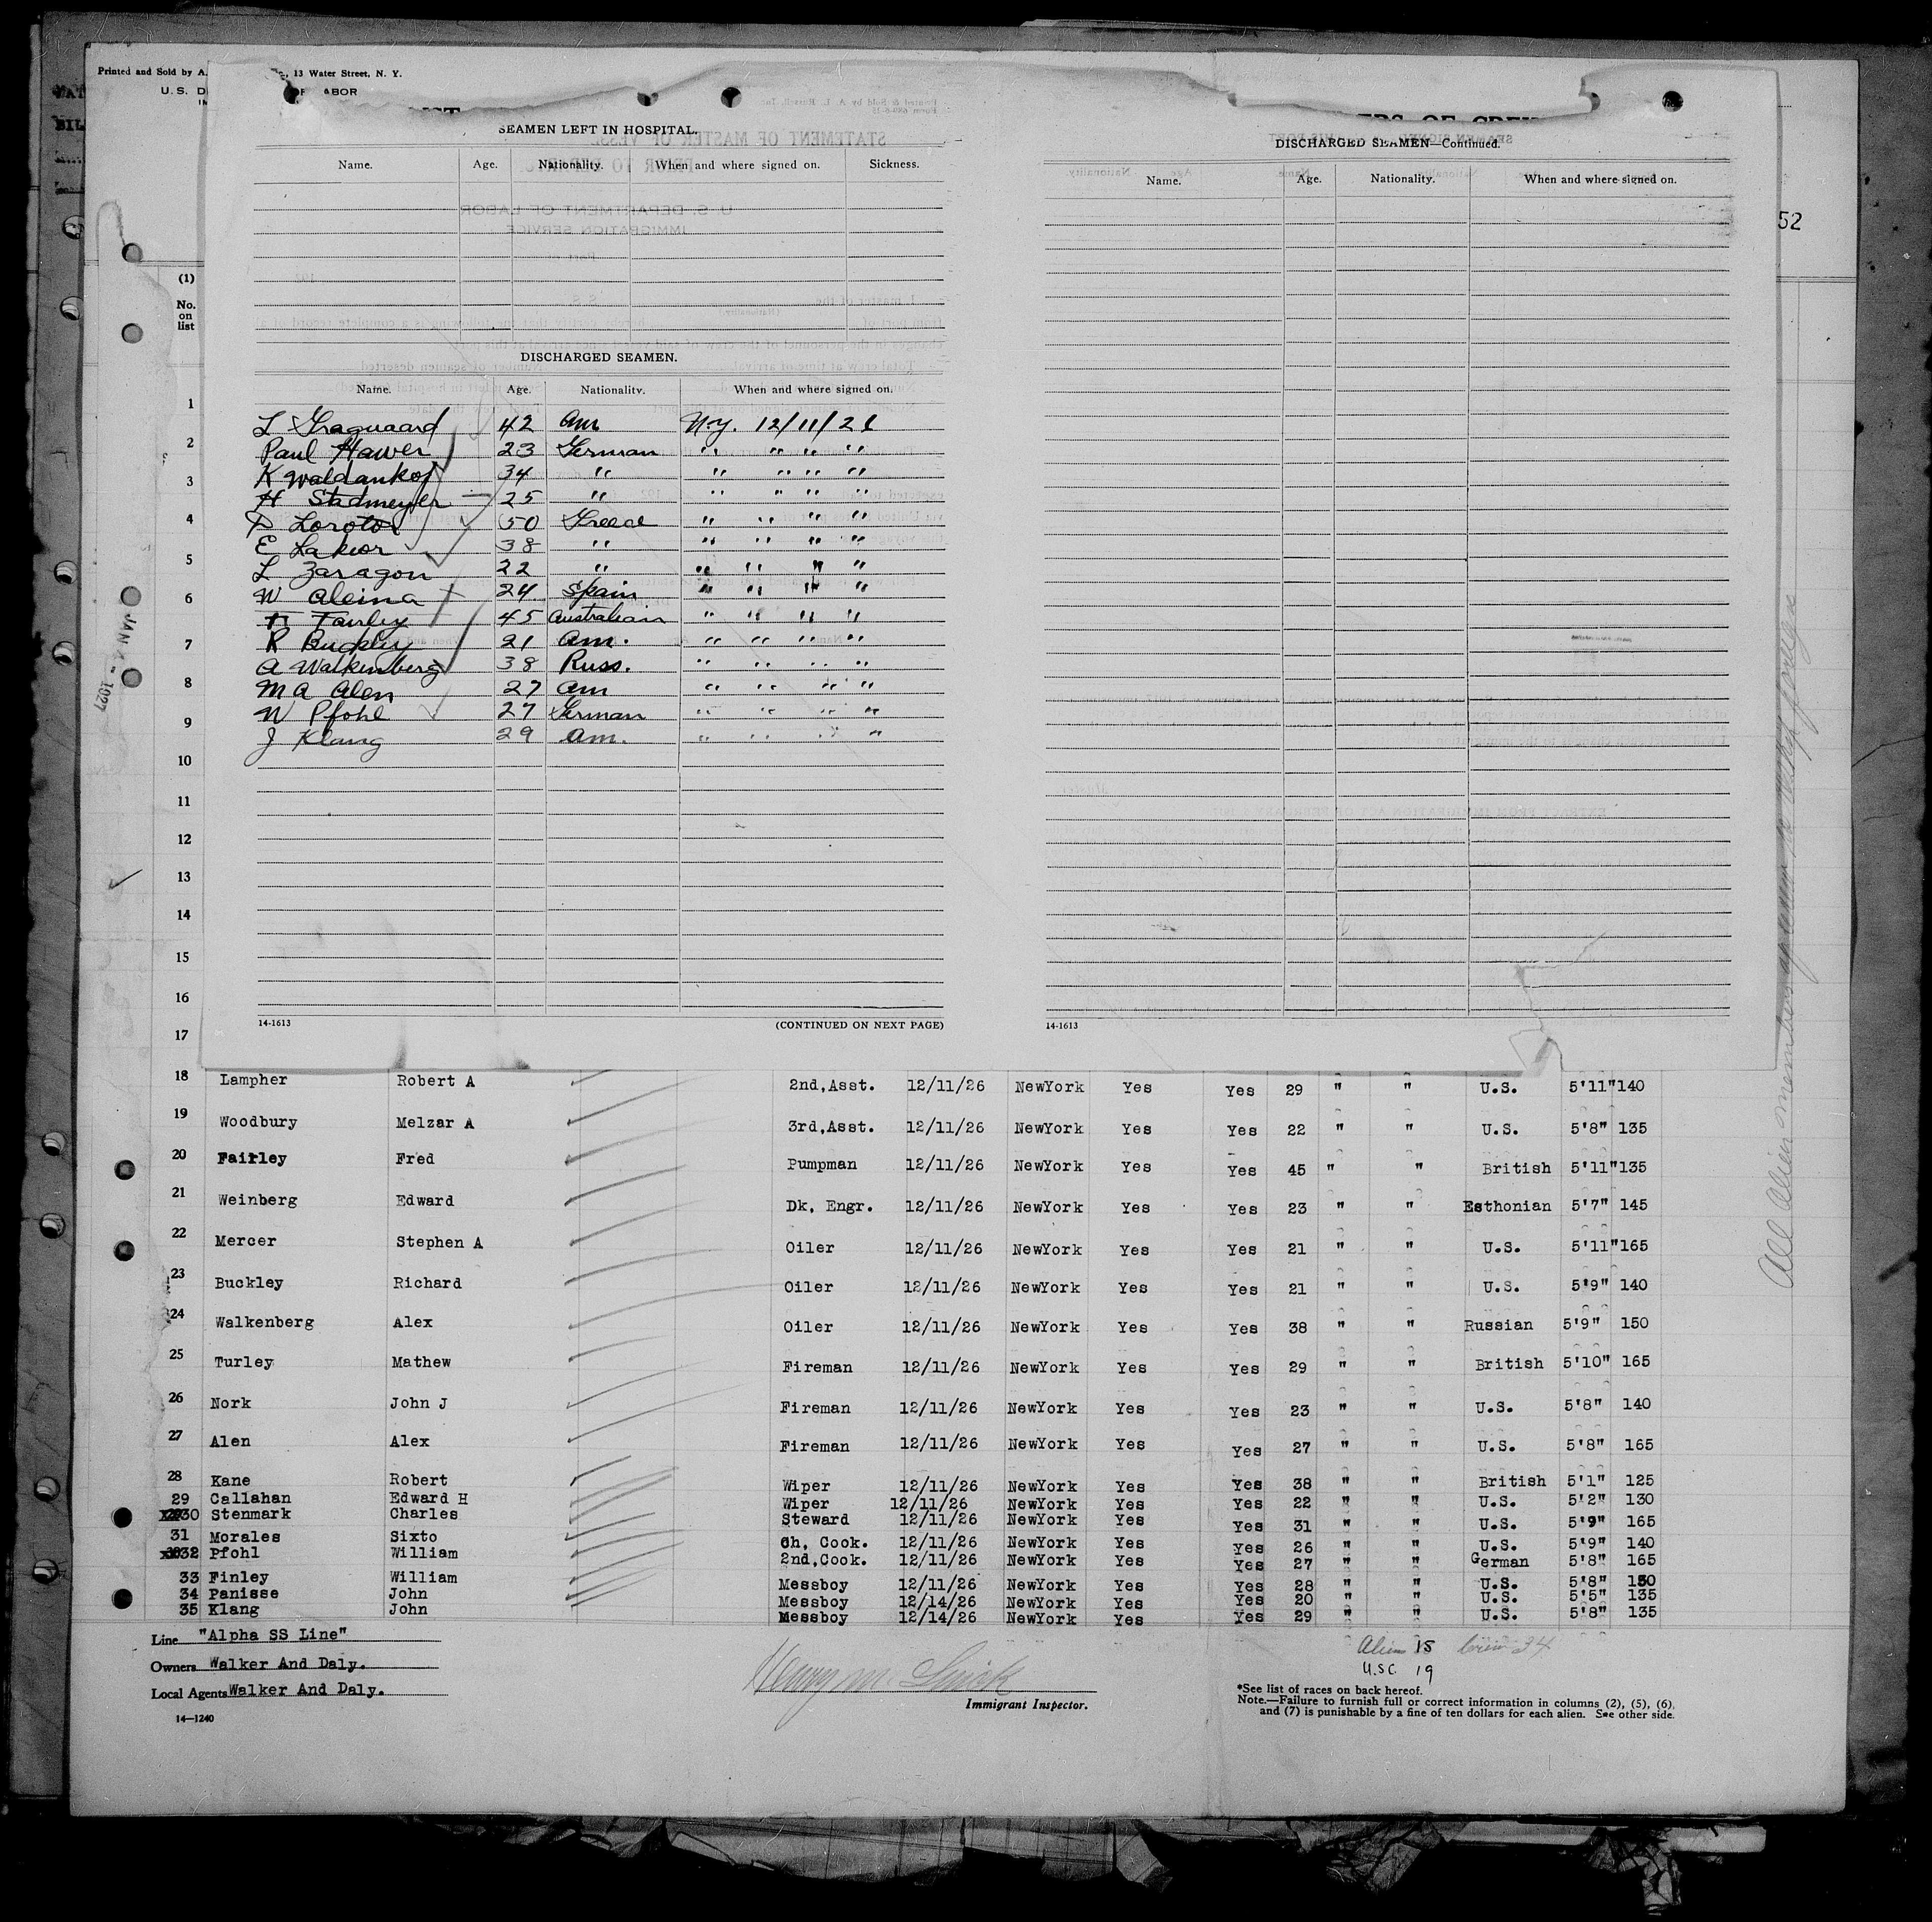 Printed and Sold by A.
13 Water Street, N. Y.
U. S. D
ABOR
52
SEAMEN LEFT IN HOSPITAL.
Name. Age. Nationality. When and where signed on. Sickness.
DISCHARGED SEAMEN.
Name. Age. Nationality. When and where signed on.
L 42 Am N.Y. 12/11/26
Paul Hawer 23 German " " " "
K Waldankof 34 " " " " "
H Stadmeyer 25 " " " " "
Loroto 50 Greece " " " "
E Lakior 38 " " " " "
L Zaragon 22 " " " " "
W Aleina 24 Spain " " " "
Fairley 45 Australian " " " "
R Buckley 21 Am. " " " "
A Walkenberg 38 Russ. " " " "
M A Alen 27 Am " " " "
W Pfohl 27 German " " " "
J Klang 29 Am. " " " "
14-1613
(CONTINUED ON NEXT PAGE)
DISCHARGED SEAMEN—Continued.
Name. Age. Nationality. When and where signed on.
14-1613
(1)
No.
on
list
1
2
3
4
5
6
7
8
9
10
11
12
13
14
15
16
17
JAN 1 - 1927
18 Lampher Robert A 2nd,Asst. 12/11/26 NewYork Yes Yes 29 " " U.S. 5'11" 140
19 Woodbury Melzar A 3rd,Asst. 12/11/26 NewYork Yes Yes 22 " " U.S. 5'8" 135
20 Fairley Fred Pumpman 12/11/26 NewYork Yes Yes 45 " " British 5'11" 135
21 Weinberg Edward Dk, Engr. 12/11/26 NewYork Yes Yes 23 " " Esthonian 5'7" 145
22 Mercer Stephen A Oiler 12/11/26 NewYork Yes Yes 21 " " U.S. 5'11" 165
23 Buckley Richard Oiler 12/11/26 NewYork Yes Yes 21 " " U.S. 5'9" 140
24 Walkenberg Alex Oiler 12/11/26 NewYork Yes Yes 38 " " Russian 5'9" 150
25 Turley Mathew Fireman 12/11/26 NewYork Yes Yes 29 " " British 5'10" 165
26 Nork John J Fireman 12/11/26 NewYork Yes Yes 23 " " U.S. 5'8" 140
27 Alen Alex Fireman 12/11/26 NewYork Yes Yes 27 " " U.S. 5'8" 165
28 Kane Robert Wiper 12/11/26 NewYork Yes Yes 38 " " British 5'1" 125
29 Callahan Edward H Wiper 12/11/26 NewYork Yes Yes 22 " " U.S. 5'2" 130
30 Stenmark Charles Steward 12/11/26 NewYork Yes Yes 31 " " U.S. 5'9" 165
31 Morales Sixto Ch, Cook. 12/11/26 NewYork Yes Yes 26 " " U.S. 5'9" 140
32 Pfohl William 2nd,Cook. 12/11/26 NewYork Yes Yes 27 " " German 5'8" 165
33 Finley William Messboy 12/11/26 NewYork Yes Yes 28 " " U.S. 5'8" 150
34 Panisse John Messboy 12/14/26 NewYork Yes Yes 20 " " U.S. 5'5" 135
35 Klang John Messboy 12/14/26 NewYork Yes Yes 29 " " U.S. 5'8" 135
Line "Alpha SS Line"
Owners Walker And Daly.
Local Agents Walker And Daly.
14—1240
Immigrant Inspector.
Aliens 15
U.S.C. 19
*See list of races on back hereof.
Note.—Failure to furnish full or correct information in columns (2), (5), (6), and (7) is punishable by a fine of ten dollars for each alien. See other side.
All Alien members